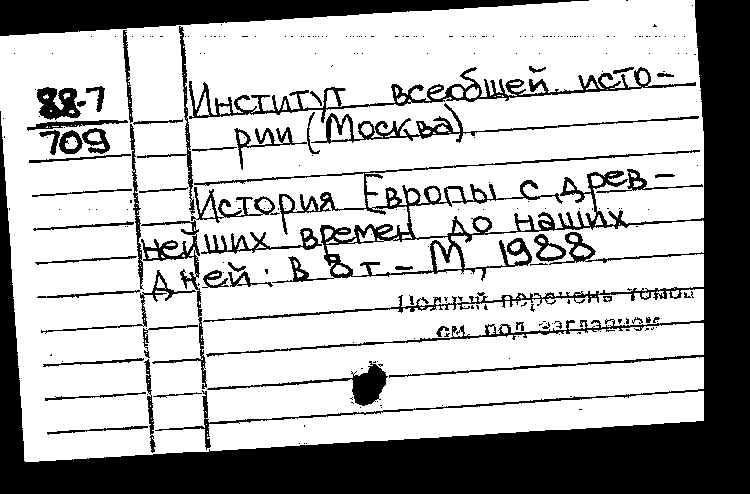 88-7
709
Институт всеобщей исто-
рии (Москва).
История Европы с древ-
нейших времен до наших
дней: в 8 т. - М., 1988.
Полный перечень томов
см. под заглавием